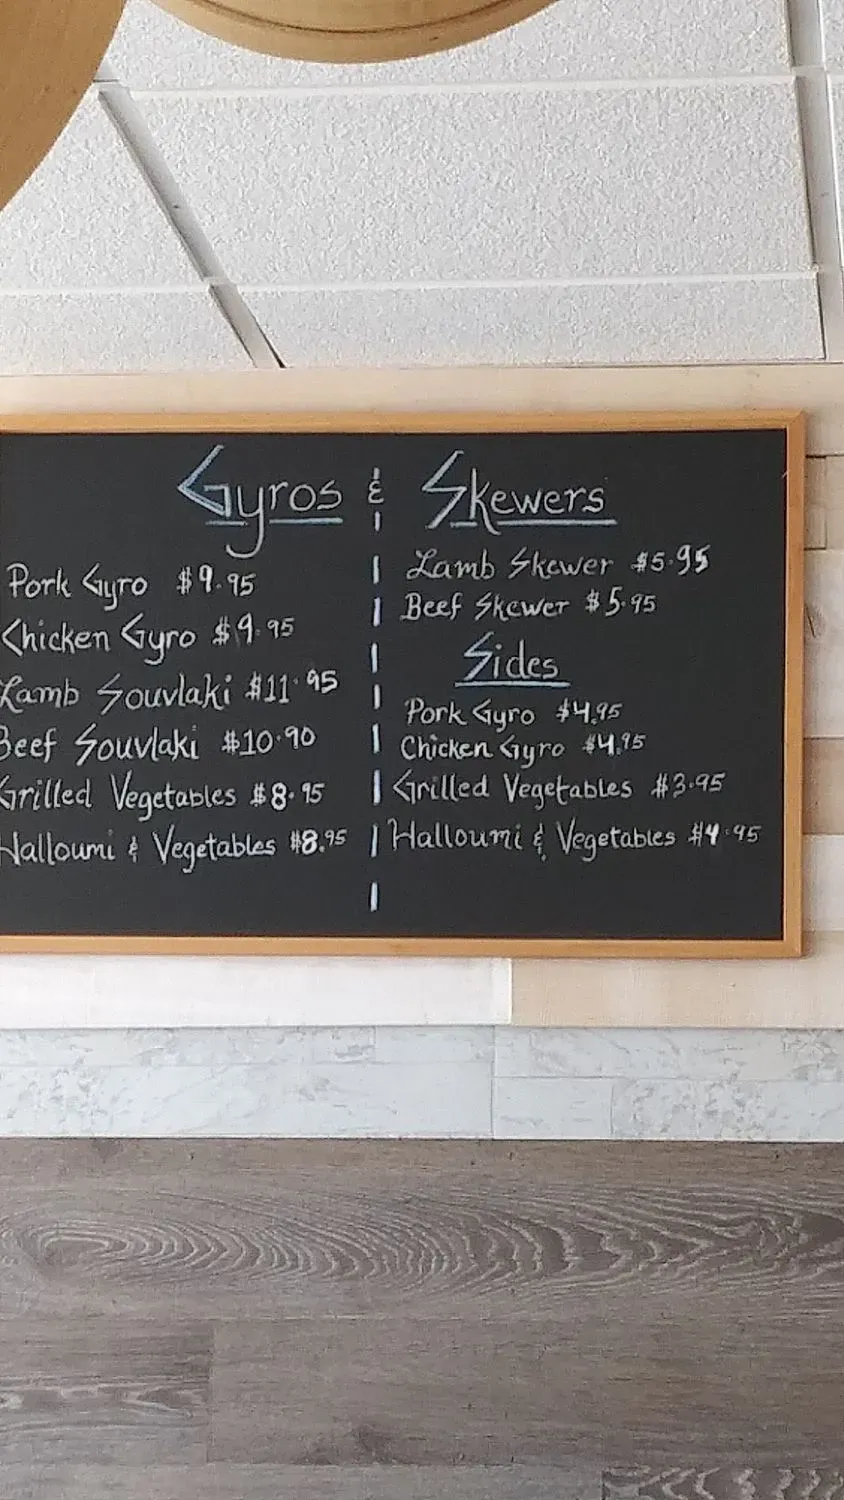 Gyros & Skewers
Pork Gyro $9.95
Chicken Gyro $9.95
Lamb Souvlaki $11.95
Beef Souvlaki $10.90
Grilled Vegetables $8.95
Halloumi & Vegetables $8.95
Lamb Skewer $5.95
Beef Skewer $5.95
Sides
Pork Gyro $4.95
Chicken Gyro $4.95
Grilled Vegetables $3.95
Halloumi & Vegetables $4.95